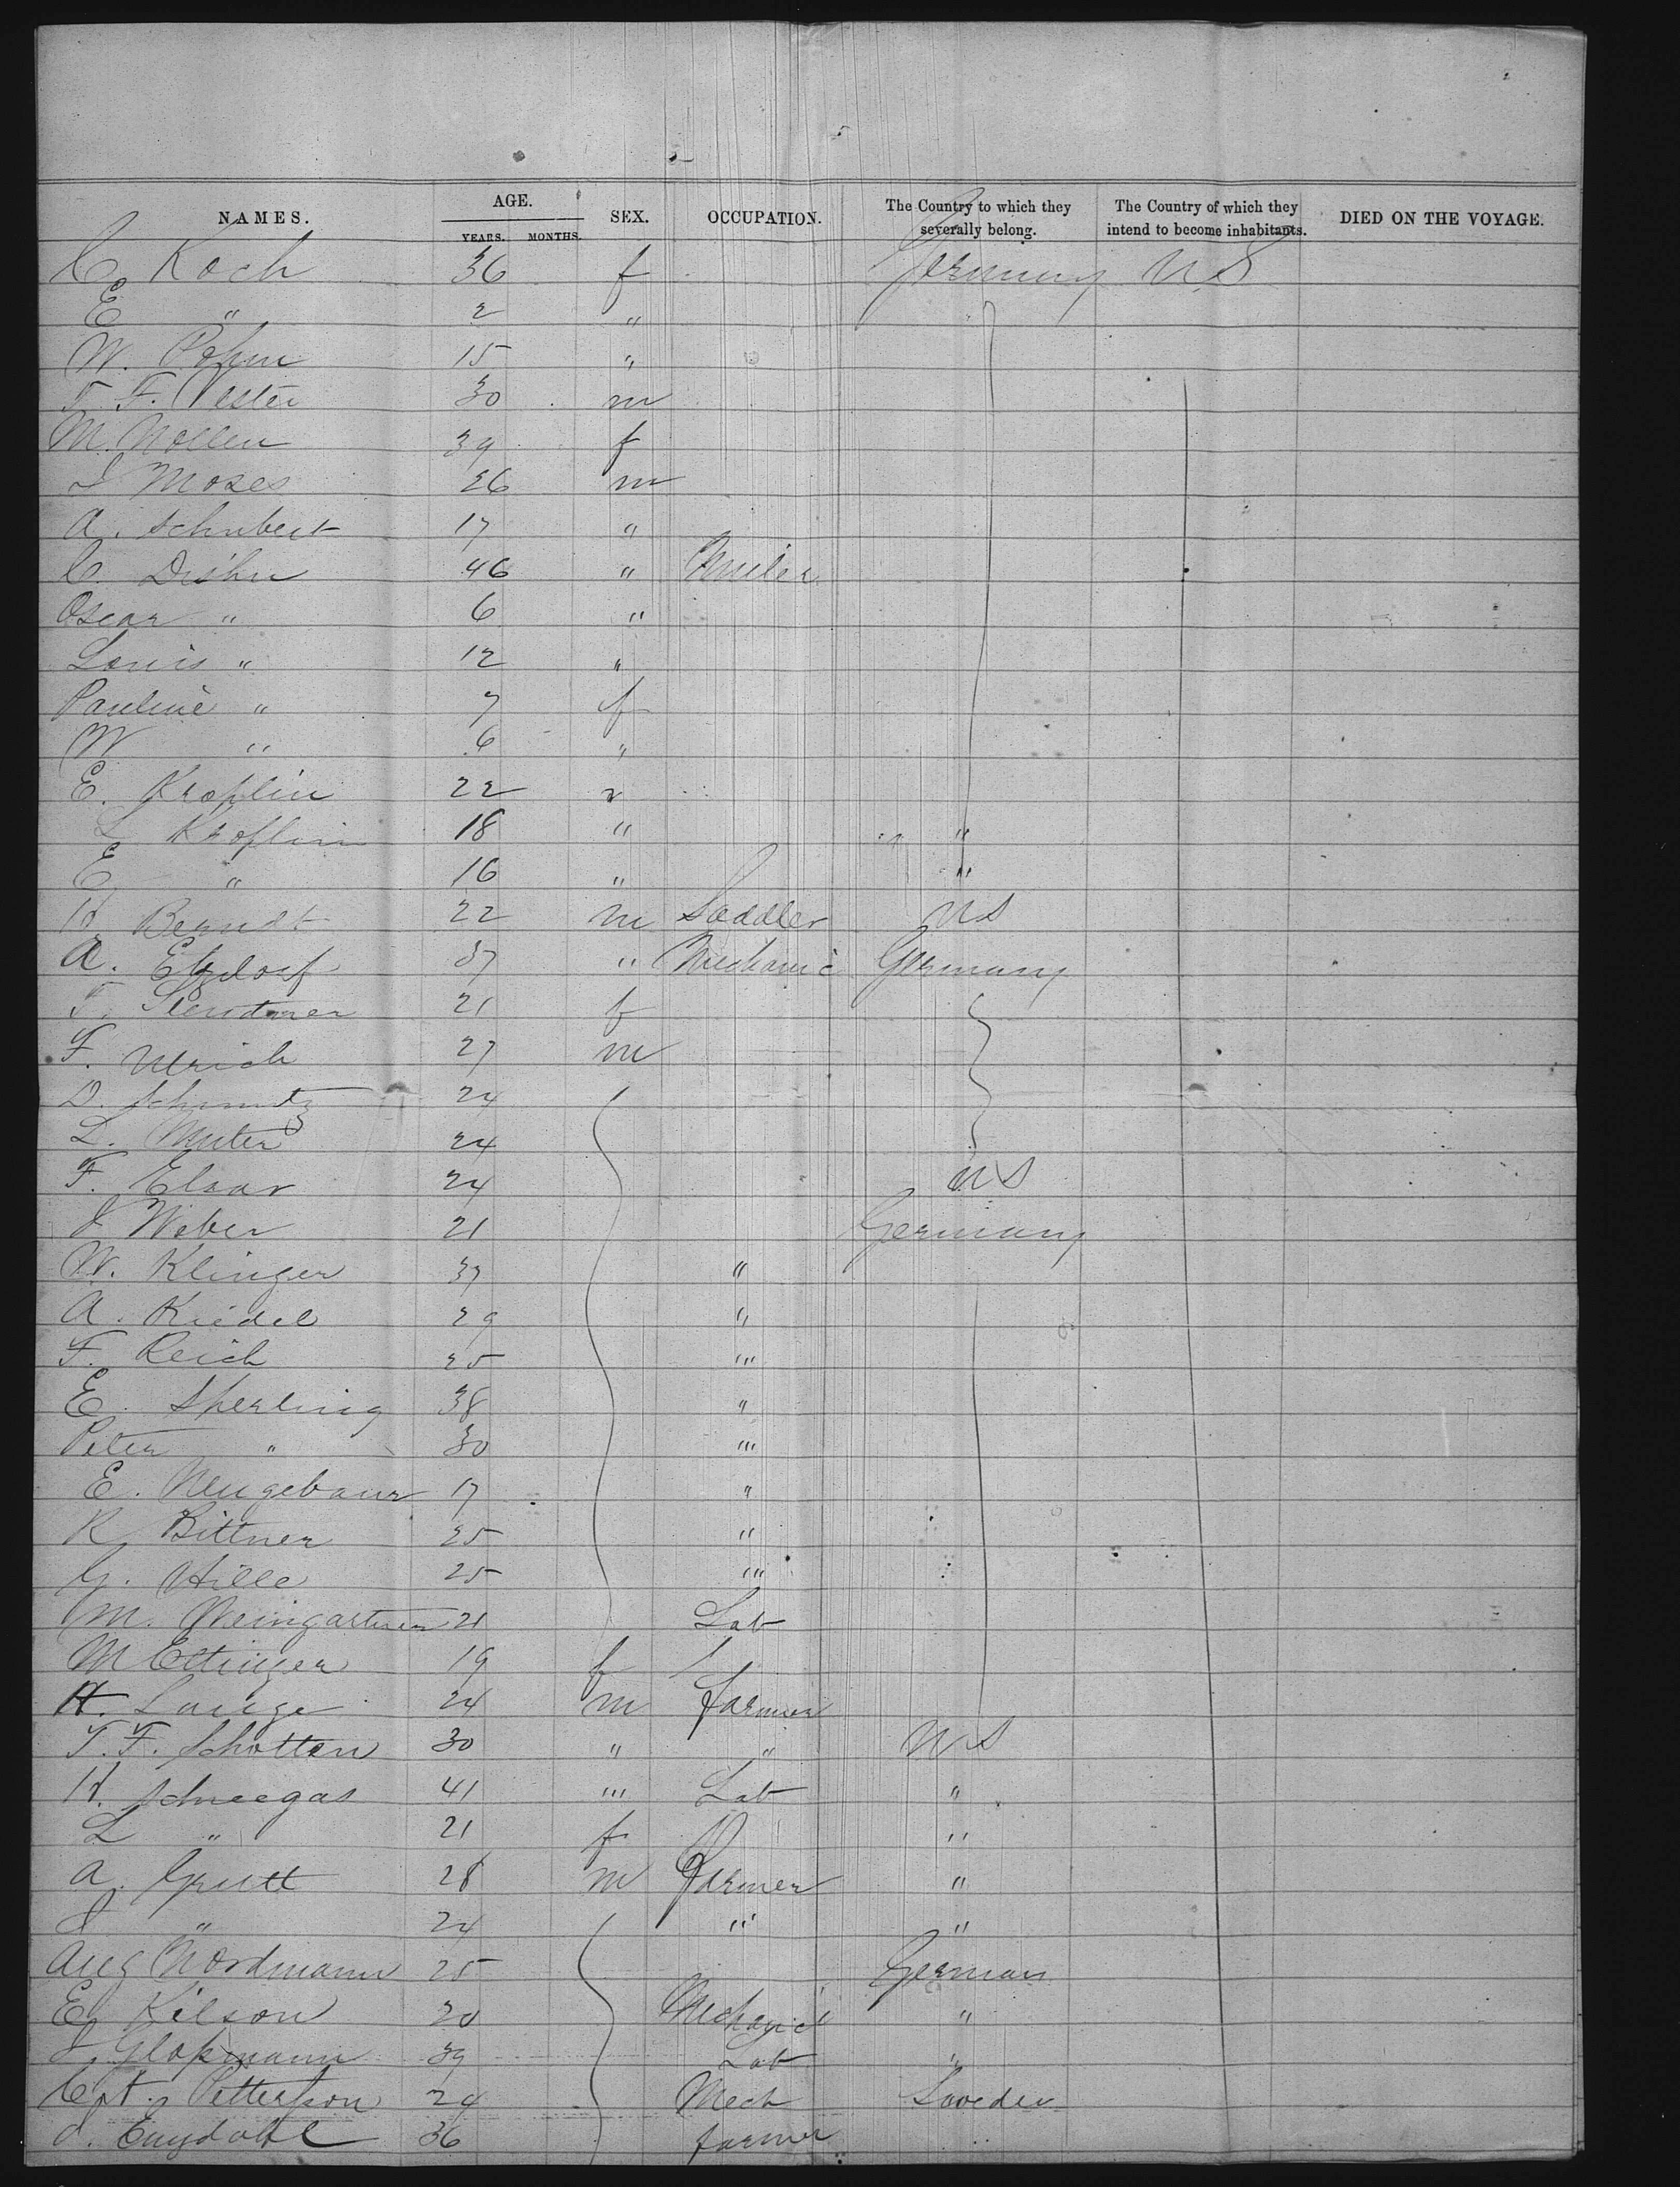 NAMES. AGE. SEX. OCCUPATION. The Country to which they severally belong. The Country of which they intend to become inhabitants. DIED ON THE VOYAGE.
YEARS. MONTHS.
C. Koch 36 f Germany U S
E " 2 "
W. 15 "
T. F. Vester 30 m
M. Nollen 39 f
I Moses 26 m
A. Schubert 17 "
C. Dishn 46 " Miller
Oscar " 6 "
Louis " 12 "
Pauline " 7 f
W " 6 "
E. Kroplin 22 "
L Kroplin 18 " " "
E " 16 " "
H. Berndt 22 m Saddler U S
A. Etzdorf 37 " Mechanic Germany
T. 21 f
F. Ulrich 27 m
D. Schmutz 24
L. Muter 24
F. Elsar 24 U S
J Weber 21 Germany
W. Klinger 37 "
A. Kiedel 29 "
F. Reich 25 "
E. Sperling 38 "
Peter " 30 "
E. Neugebaur 17 "
R Bittner 25 "
G. Hille 25 "
M. Weingartner 21 Lab
M Ettinger 19 f
H. Lange 24 m farmer
T. F. Schotten 30 " " U S
H. Schneegas 41 " Lab "
L " 21 f "
A. Grutt 28 m Farmer "
J " 24 " "
Aug Nordmann 25 German
E Kilson 20 Mechanic "
J Glopmann 39 Lab "
Cpt. Petterson 24 Mech Sweden
J. Engdahl 36 farmer "